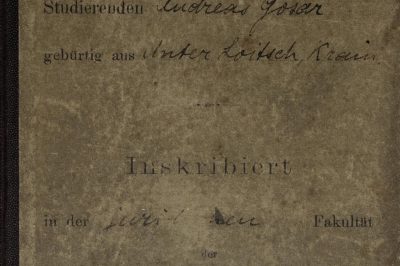 Studierenden Andreas Gosar
gebürtig aus Unter Loitsch, Krain.
Inskribiert
in der Fakultät
der